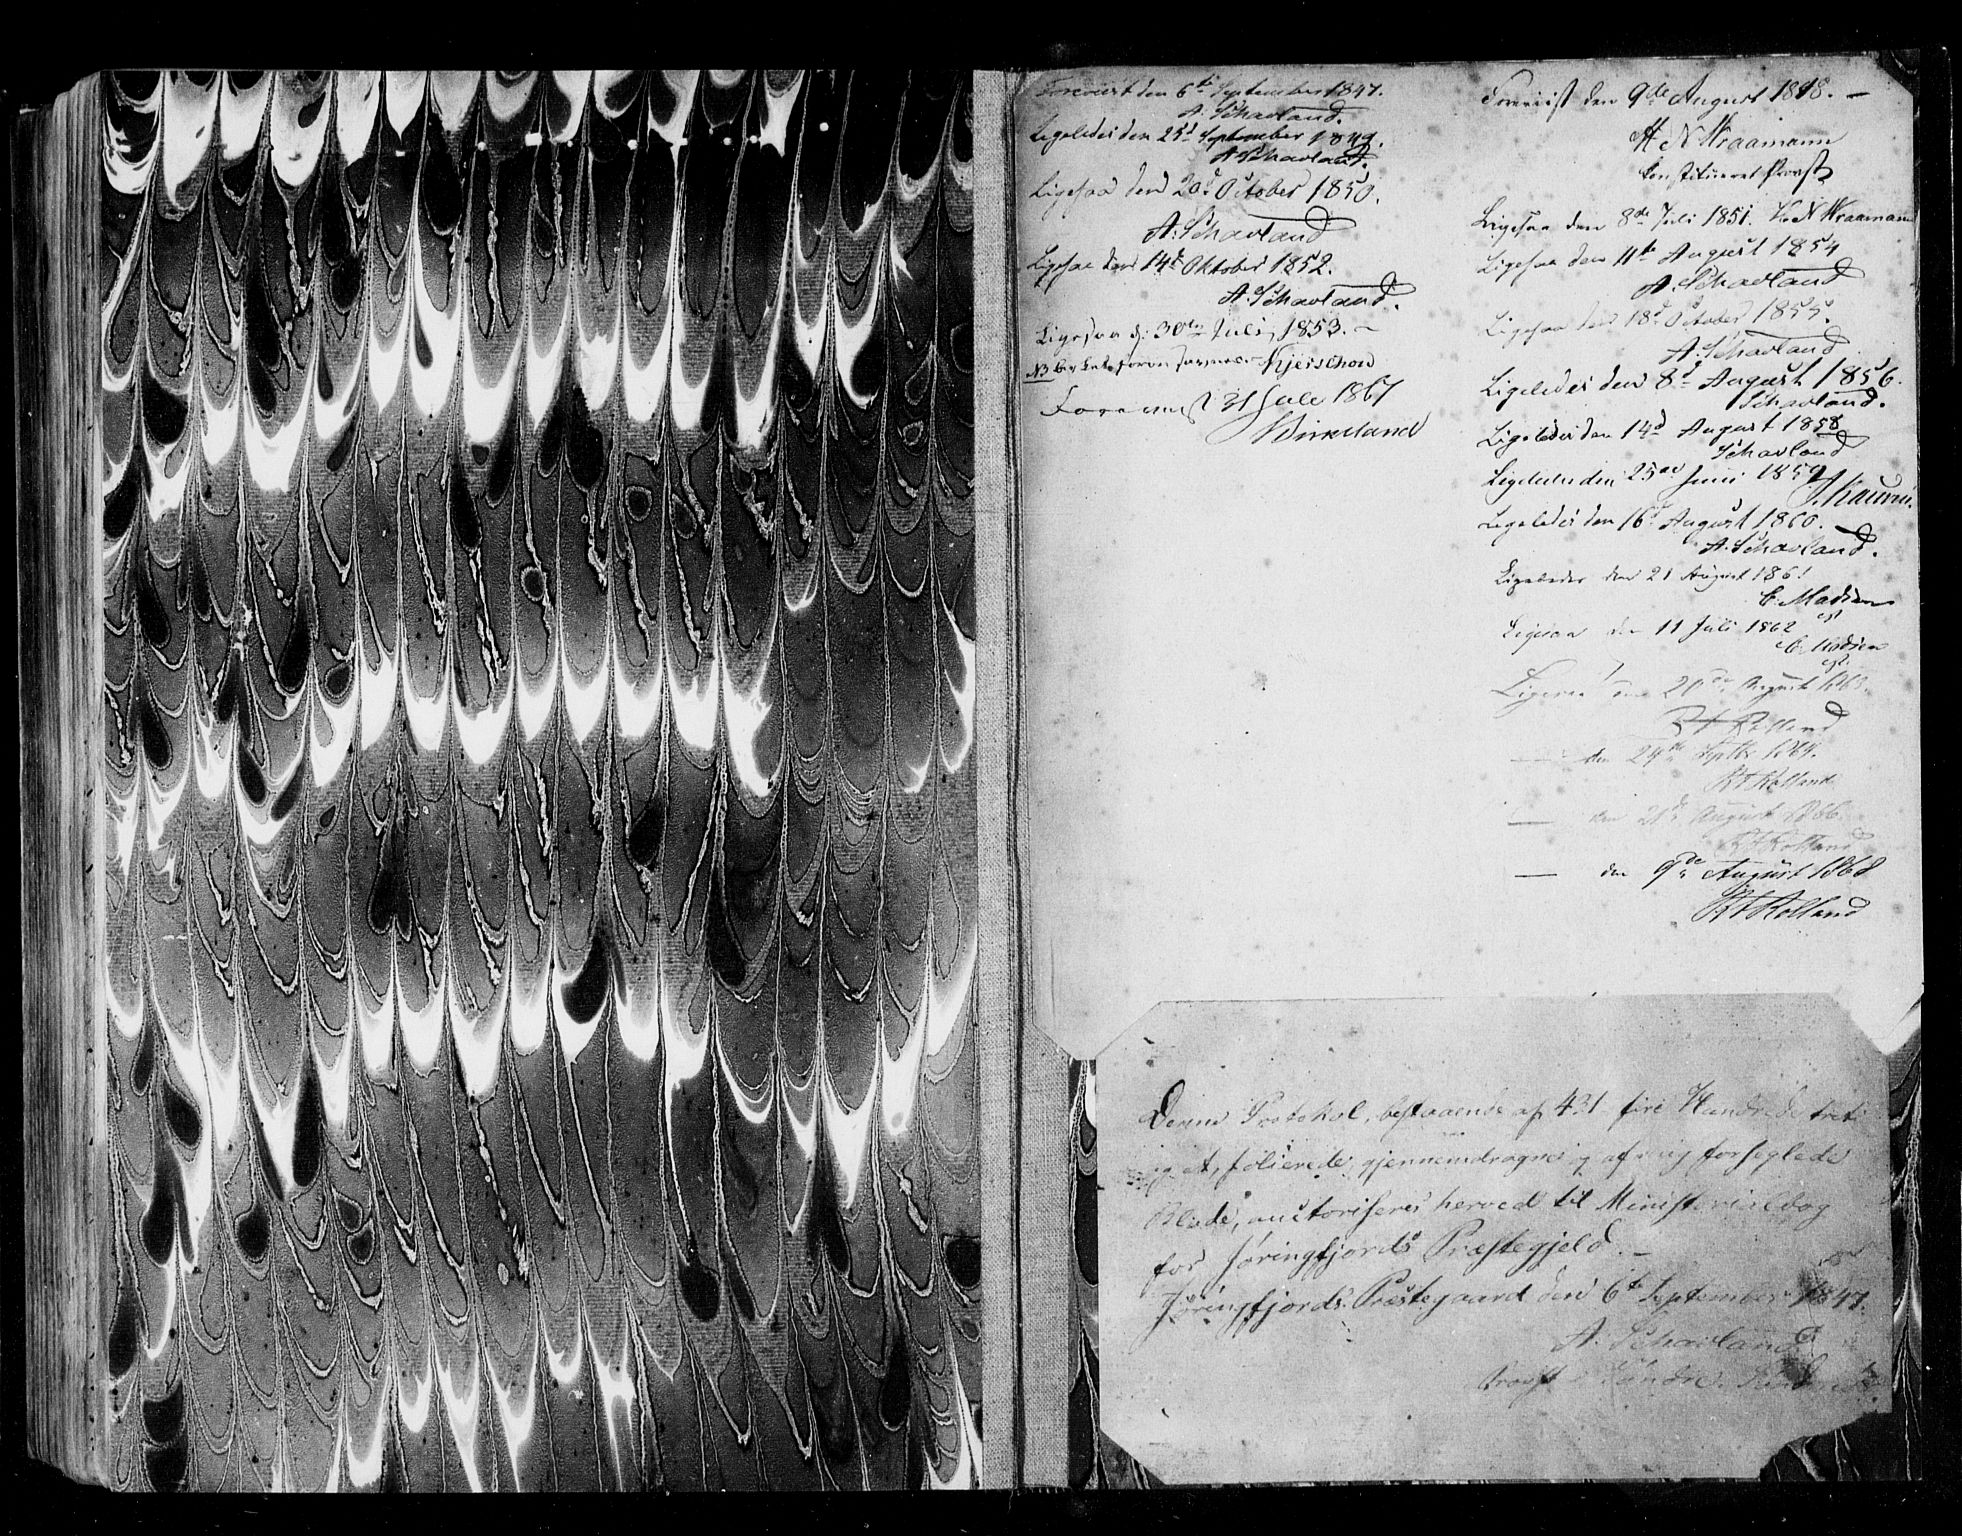 Foreviist den 6te September 1847.
A. Schavland.
Ligeledes den 25d September 1849.
A. Schavland.
Ligesaa den 20d October 1850.
A. Schavland
Ligesaa den 14d Oktober 1852.
A. Schavland.
Ligesaa d: 30te Juli 1853. –
Kjerschow
Foreviist 31 Juli 1867
Birkeland
Foreviist den 9de August 1848. –
N Kraamann
Constitueret Provst
Ligesaa den 8de Juli 1851. N Kraamann
Ligesaa den 11te August 1854
A. Schavland
Ligesaa den 18d October 1855.
A. Schavland
Ligeledes den 8d August 1856.
Schavland.
Ligeledes den 14d August 1858
Schavland
Ligeledes den 25de Juni 1859
Ligeledes den 16d August 1860.
A. Schavland.
Ligeledes den 21 August 1861
C. Madsen
cst
Ligesaa den 11 Juli 1862
C. Madsen
cst.
Ligesaa den 20de August 1863.
Rolland
— den 29de Septbr 1864.
Rolland
— den 21de August 1866.
Rolland
— den 9de August 1868
Rolland
Denne Protokol, bestaaende af 431 fire Hundrede treti
og et, folierede, gjennemdragne og af mig forseglede
Blade, auctoriseres herved til Ministerialbog
for Jøringfjords Præstegjeld. –
Jøringfjords Præstegaard den 6te September 1847.
A. Schavland
Provst Søndre